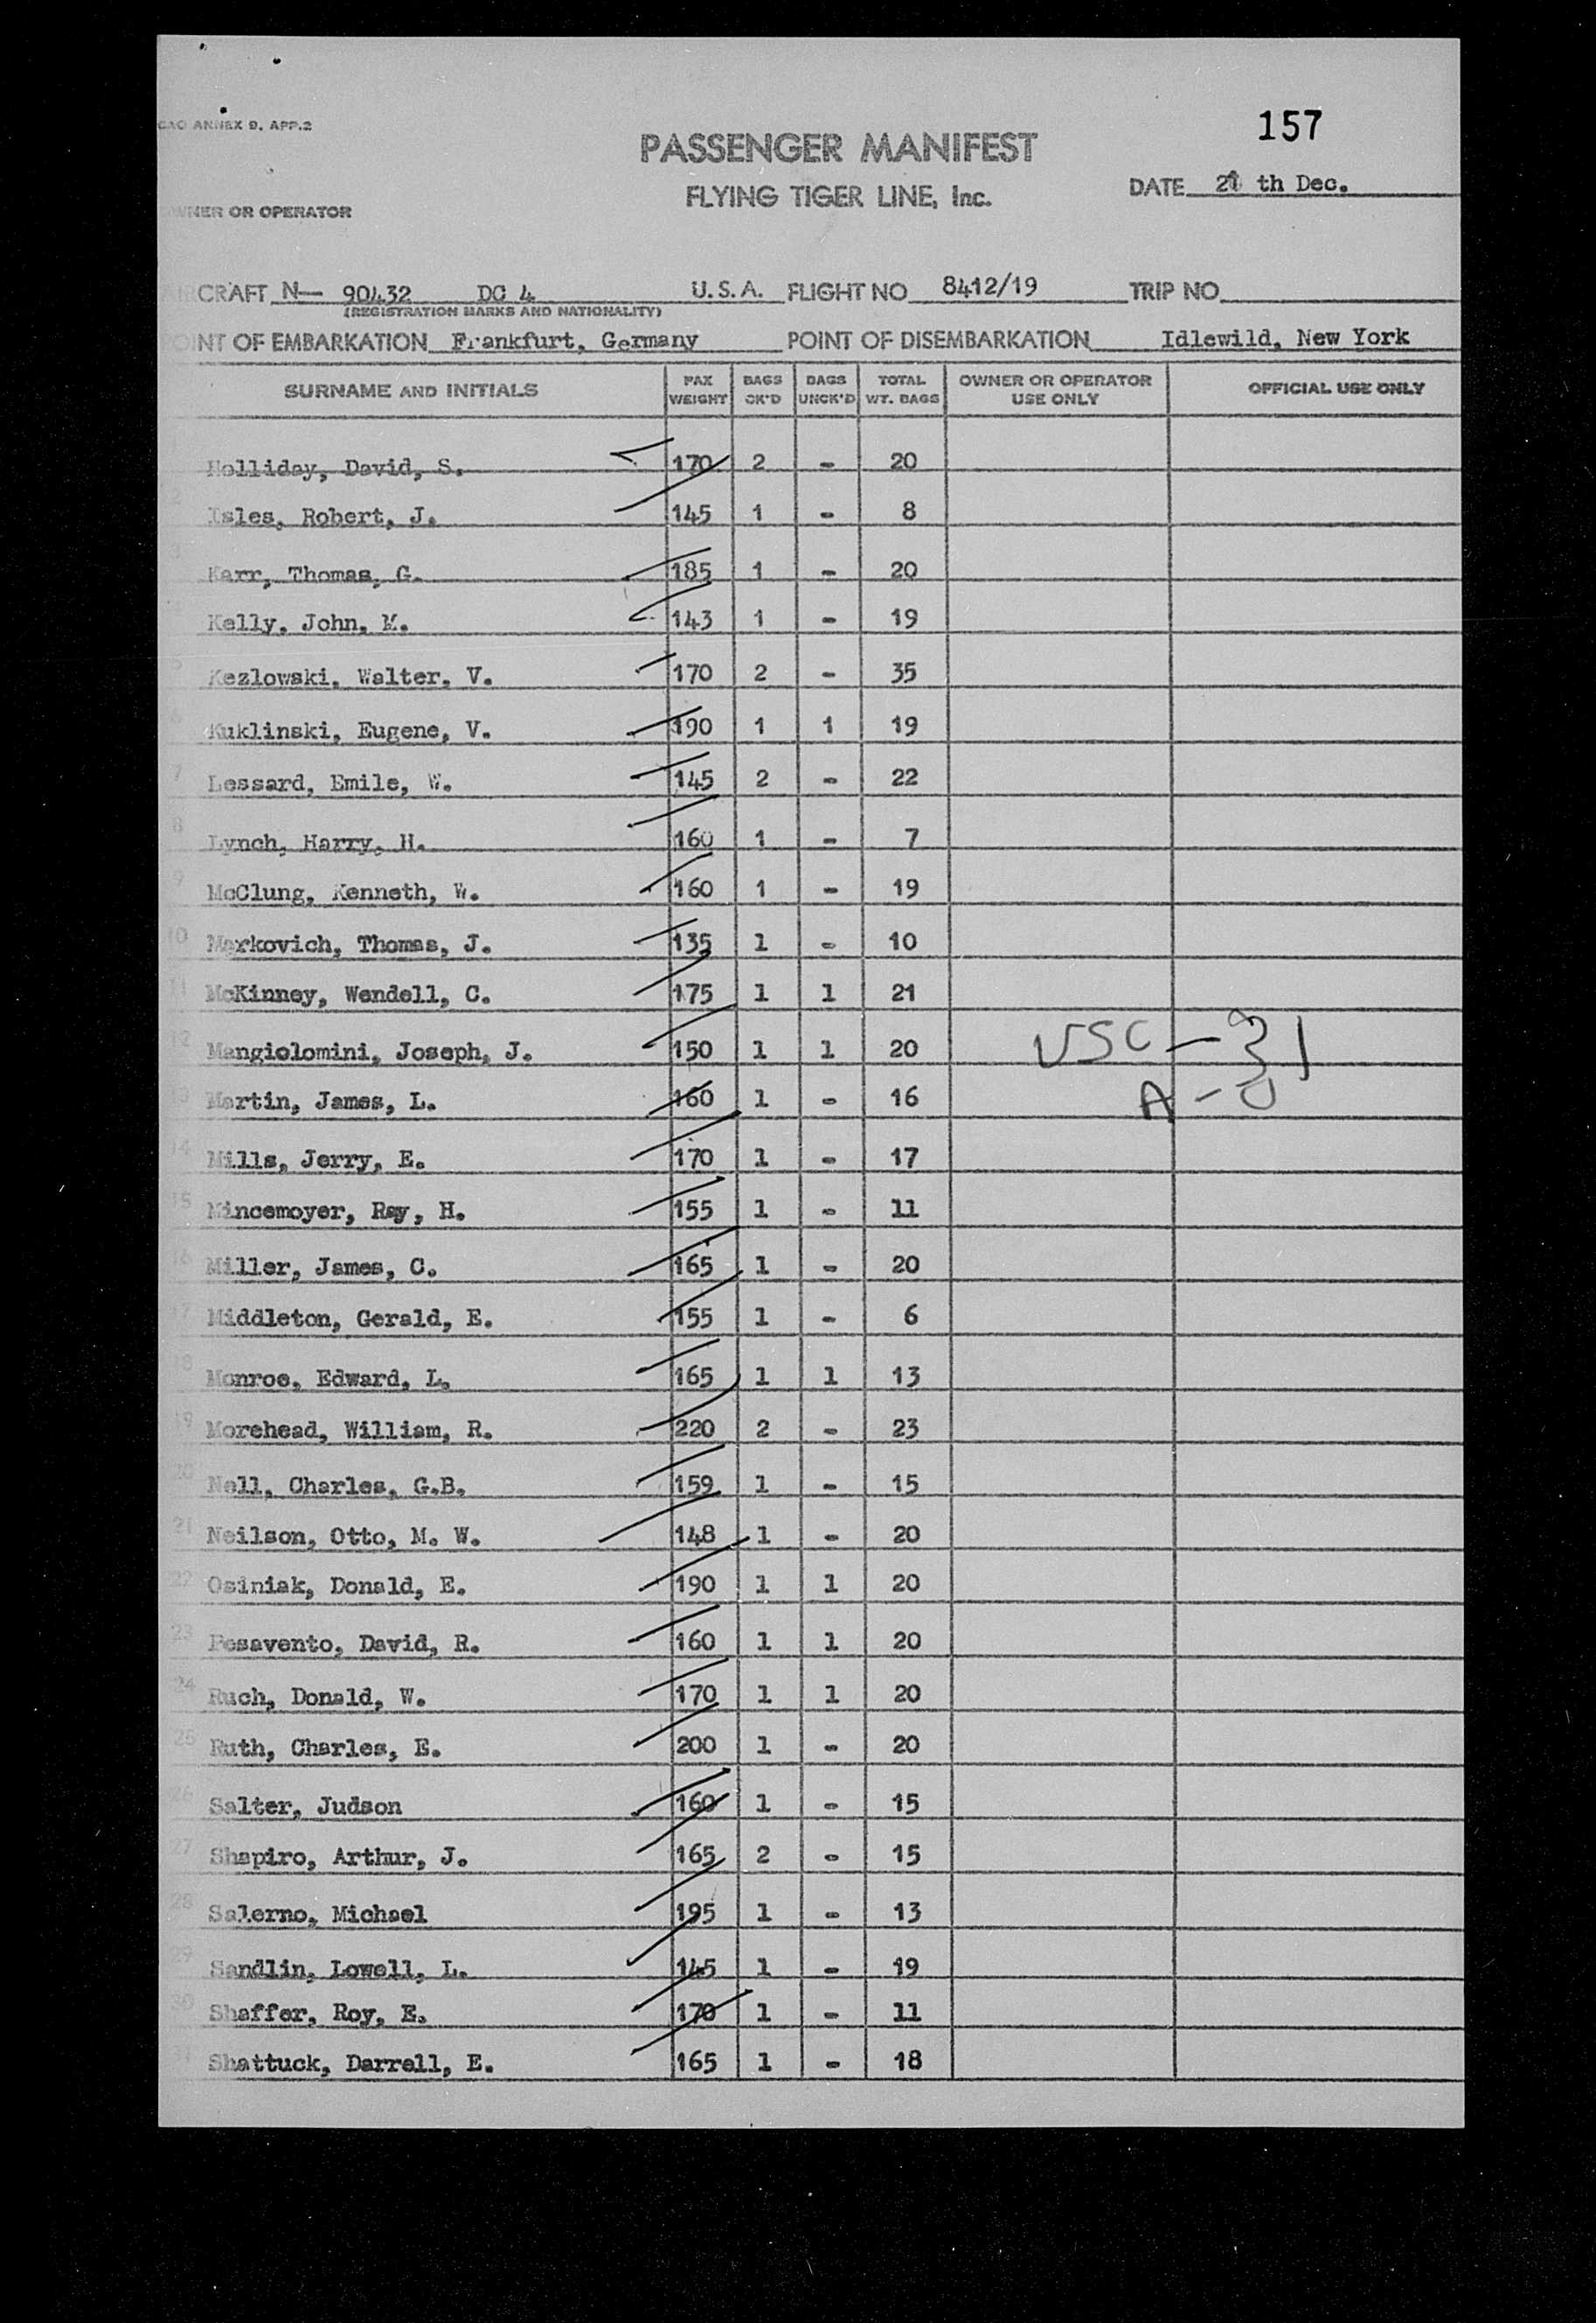 157
CAO ANNEX 9, APP.2
PASSENGER MANIFEST
FLYING TIGER LINE, Inc.
DATE th Dec.
OWNER OR OPERATOR
AIRCRAFT N— 90432 DC 4 U.S.A. FLIGHT NO 8412/19 TRIP NO
(REGISTRATION MARKS AND NATIONALITY)
POINT OF EMBARKATION Frankfurt, Germany POINT OF DISEMBARKATION Idlewild, New York
SURNAME AND INITIALS PAX WEIGHT BAGS CK'D BAGS UNCK'D TOTAL WT. BAGS OWNER OR OPERATOR USE ONLY OFFICIAL USE ONLY
Holliday, David, S. 170 2 - 20
2 Isles, Robert, J. 145 1 - 8
3 Karr, Thomas, G. 185 1 - 20
Kelly, John, M. 143 1 - 19
5 Kezlowski, Walter, V. 170 2 - 35
6 Kuklinski, Eugene, V. 190 1 1 19
7 Lessard, Emile, W. 145 2 - 22
8 Lynch, Harry, H. 160 1 - 7
9 McClung, Kenneth, W. 160 1 - 19
10 Markovich, Thomas, J. 135 1 - 10
11 McKinney, Wendell, C. 175 1 1 21
12 Mangiolomini, Joseph, J. 150 1 1 20 USC - 31
13 Martin, James, L. 160 1 - 16 A - 0
14 Mills, Jerry, E. 170 1 - 17
15 Mincemoyer, Ray, H. 155 1 - 11
16 Miller, James, C. 165 1 - 20
17 Middleton, Gerald, E. 155 1 - 6
18 Monroe, Edward, L. 165 1 1 13
19 Morehead, William, R. 220 2 - 23
20 Nell, Charles, G.B. 159 1 - 15
21 Neilson, Otto, M. W. 148 1 - 20
22 Osiniak, Donald, E. 190 1 1 20
23 Pesavento, David, R. 160 1 1 20
24 Ruch, Donald, W. 170 1 1 20
25 Ruth, Charles, E. 200 1 - 20
26 Salter, Judson 160 1 - 15
27 Shapiro, Arthur, J. 165 2 - 15
28 Salerno, Michael 195 1 - 13
29 Sandlin, Lowell, L. 145 1 - 19
30 Shaffer, Roy, E. 170 1 - 11
31 Shattuck, Darrell, E. 165 1 - 18